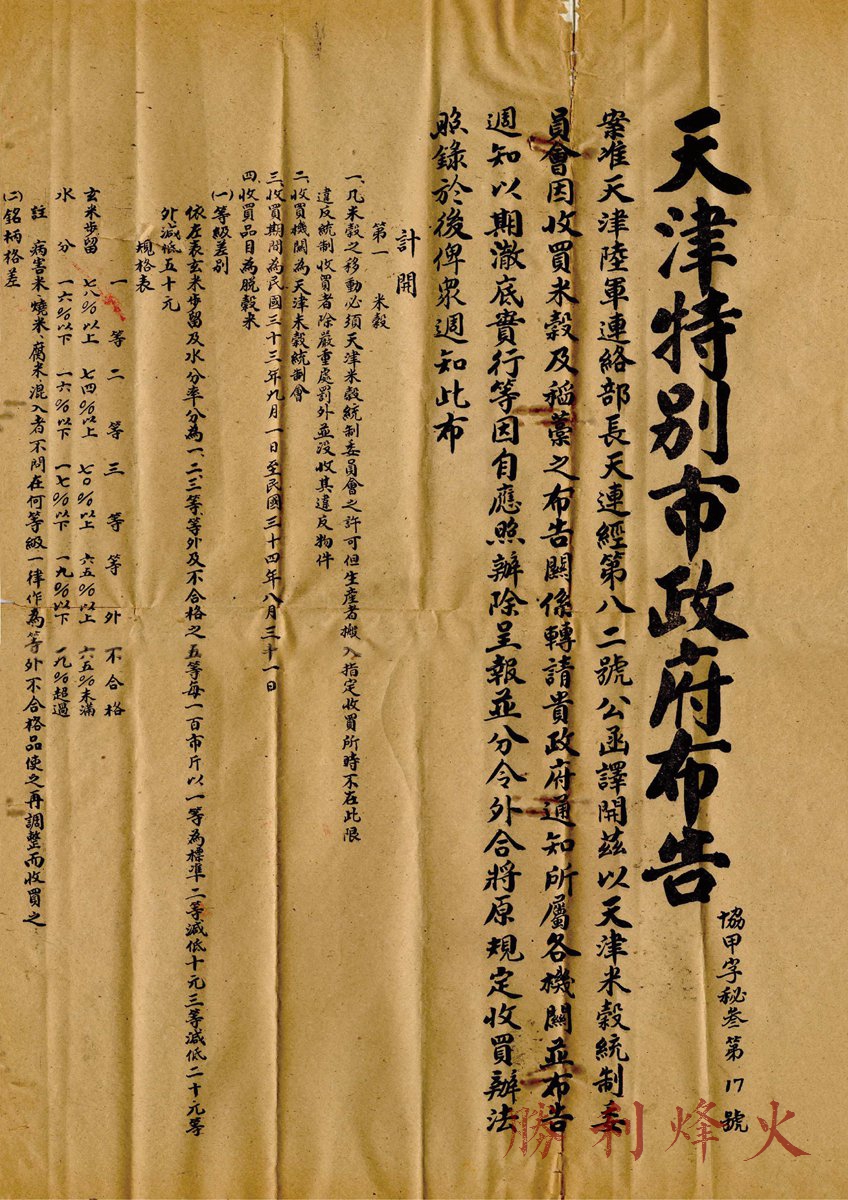 天津特別市政府布告
協甲字秘叁第17號
案准天津陸軍連絡部長天連經第八二號公函譯開茲以天津米穀統制委
員會因收買米穀及稻藁之布告關係轉請貴政府通知所屬各機關並布告
週知以期澈底實行等因自應照辦除呈報並分令外合將原規定收買辦法
照錄於後俾眾週知此布
計開
第一 米穀
一、凡米穀之移動必須天津米穀統制委員會之許可但生產者搬入指定收買所時不在此限
違反統制收買者除嚴重處罰外並沒收其違反物件
二、收買機關為天津米穀統制會
三、收買期間為民國三十三年九月一日至民國三十四年八月三十一日
四、收買品目為脱穀米
(一)等級差別
依左表玄米步留及水分率分為一、二、三、等等外及不合格之五等每一百市斤以一等為標準二等減低十元三等減低二十元等
外減低五十元
規格表
一等 二等 三等 等外 不合格
玄米步留 七八%以上 七四%以上 七〇%以上 六五%以上 六五%未滿
水分 一六%以下 一六%以下 一七%以下 一九%以下 一九%超過
註 病害米、燒米、腐米混入者不問在何等級一律作為等外不合格品使之再調整而收買之
(二)銘柄格差
勝利烽火